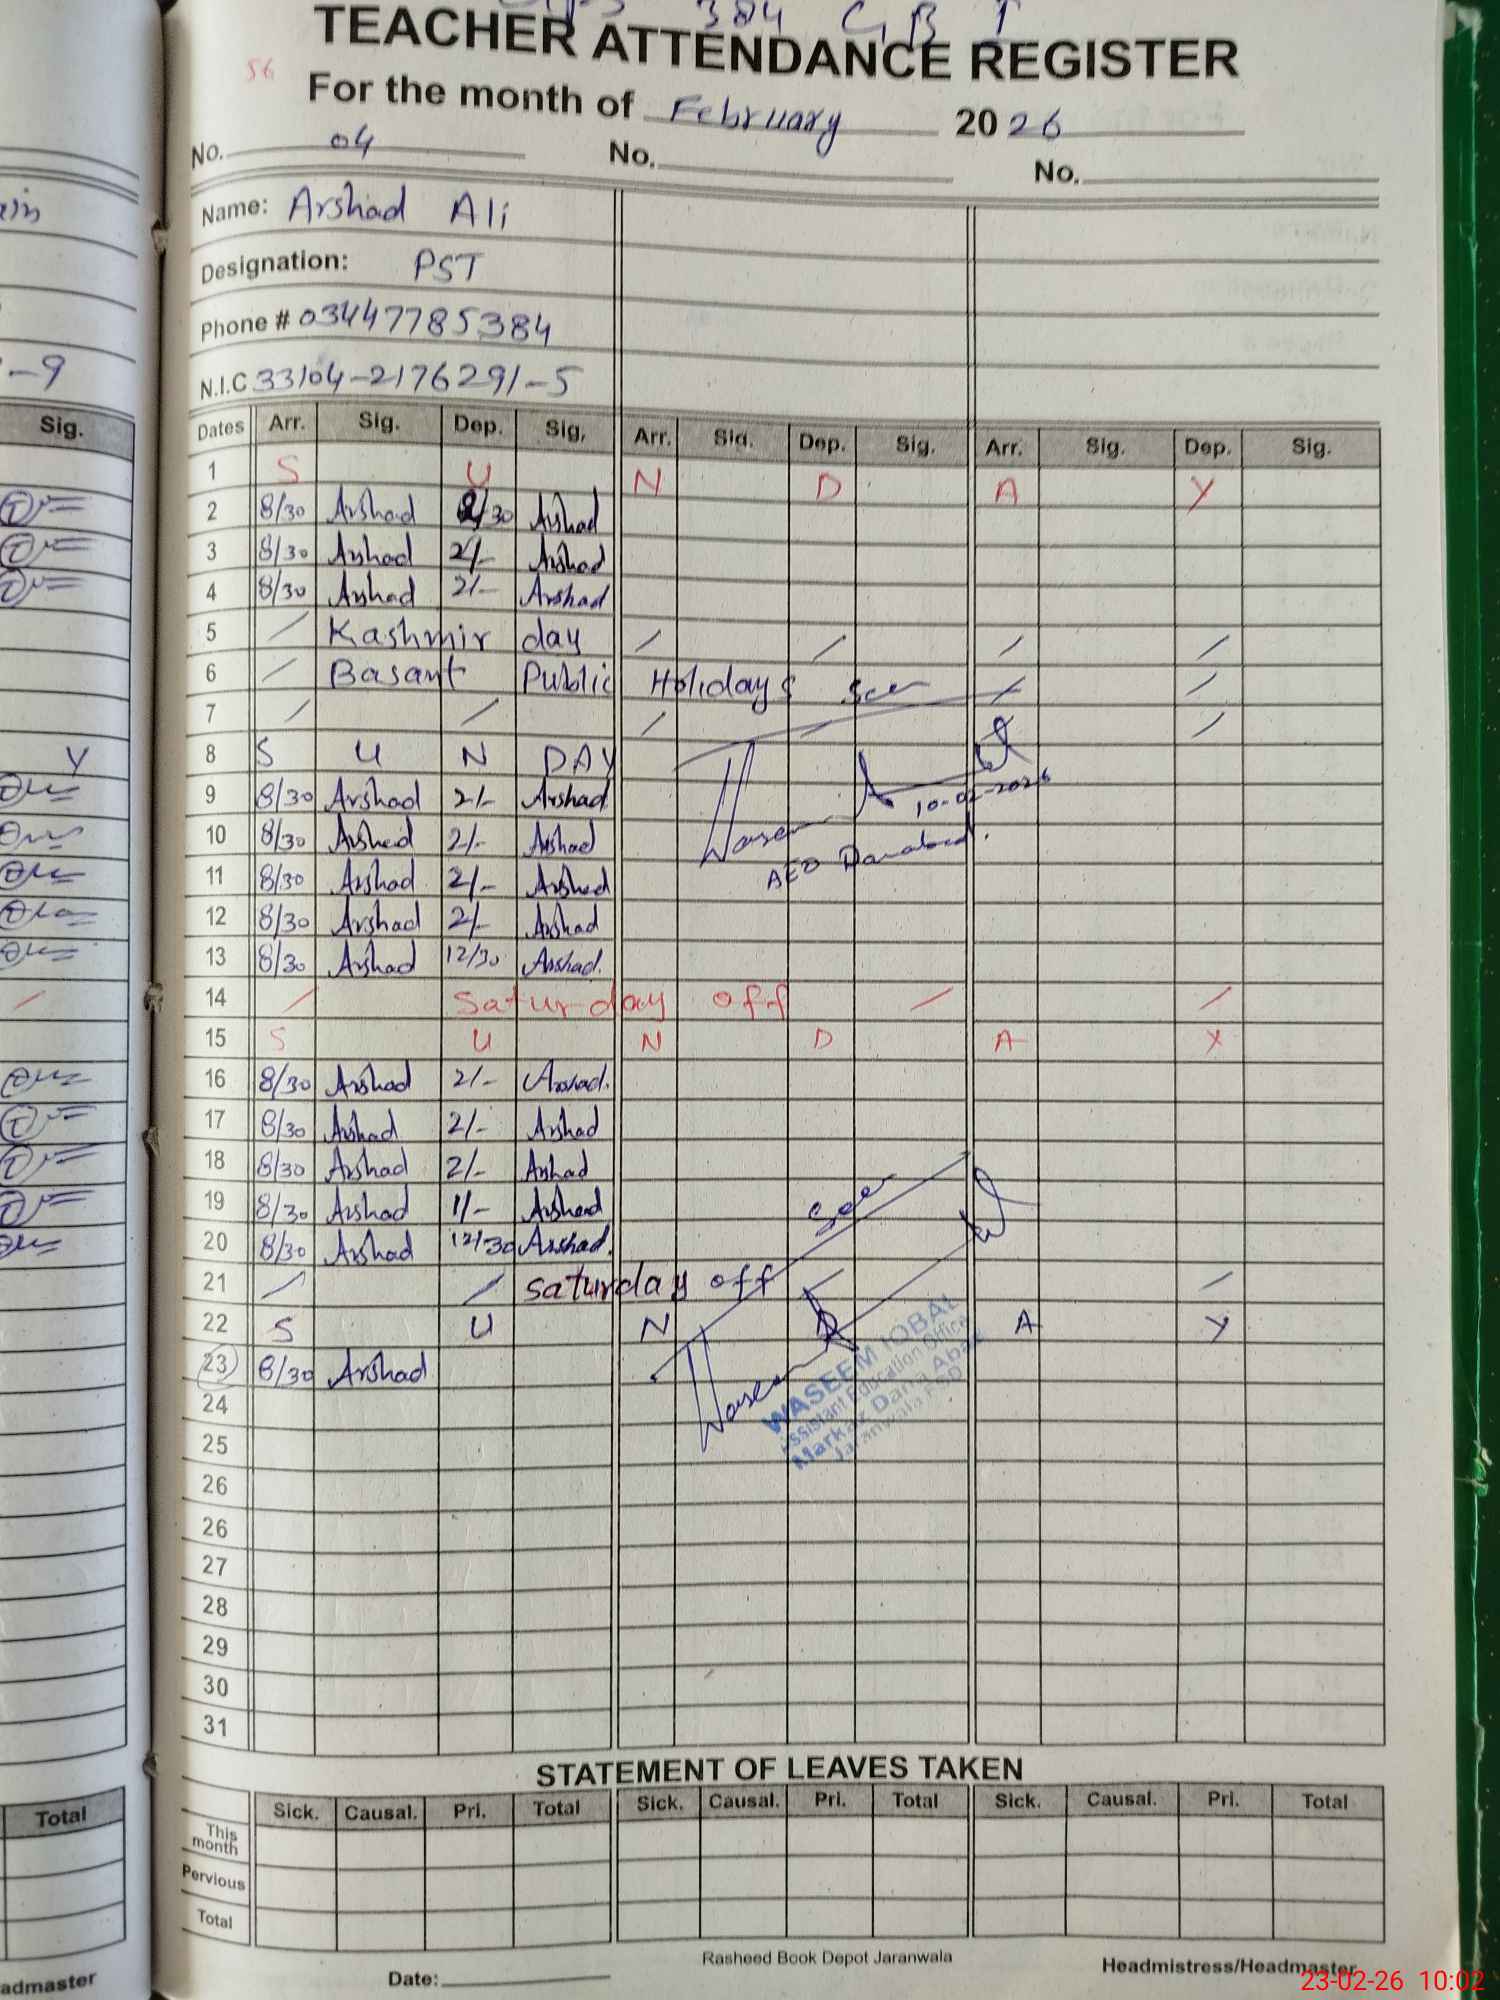 384 GB
TEACHER ATTENDANCE REGISTER
56
For the month of February 2026
No. 04 No. No.
Name: Arshad Ali
Designation: PST
Phone # 03447785384
N.I.C 33104-2176291-5
Dates Arr. Sig. Dep. Sig, Arr. Sig. Dep. Sig. Arr. Sig. Dep. Sig.
1 S U N D A Y
2 8/30 Arshad 2/30 Arshad
3 8/30 Arshad 2/- Arshad
4 8/30 Arshad 2/- Arshad
5 / Kashmir day / / / /
6 / Basant Public Holidays Seen / /
7 / / / / /
8 S U N DAY
9 8/30 Arshad 2/- Arshad
10-02-2026
10 8/30 Arshad 2/- Arshad
Waseem
AEO Danabad.
11 8/30 Arshad 2/- Arshad
12 8/30 Arshad 2/- Arshad
13 8/30 Arshad 12/30 Arshad.
14 / Saturday off / /
15 S U N D A Y
16 8/30 Arshad 2/- Arshad.
17 8/30 Arshad 2/- Arshad
18 8/30 Arshad 2/- Arshad
19 8/30 Arshad 1/- Arshad
Seen
20 8/30 Arshad 12/30 Arshad.
21 / / Saturday off / /
22 S U N D A Y
23 8/30 Arshad
Waseem
WASEEM IQBAL
Assistant Education Officer
Markaz Dana Abad
Jaranwala FSD
24
25
26
26
27
28
29
30
31
STATEMENT OF LEAVES TAKEN
Sick. Causal. Pri. Total Sick. Causal. Pri. Total Sick. Causal. Pri. Total
This month
Pervious
Total
Rasheed Book Depot Jaranwala
Date: Headmistress/Headmaster
23-02-26 10:02
-9
Sig.
Y
Total
admaster